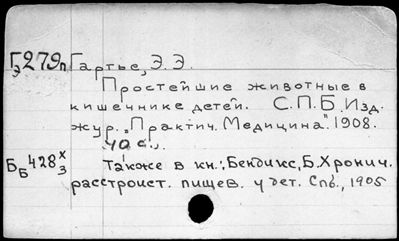 Гэ279п Гартье, Э.Э.
Простейшие животные в
кишечнике детей. С.П.Б. Изд.
жур. „Практич. Медицина". 1908.
40 с.
ББ428х3 Также в кн.: Бендикс, Б. Хронич.
расстроист. пищев. у дет. Спб., 1905